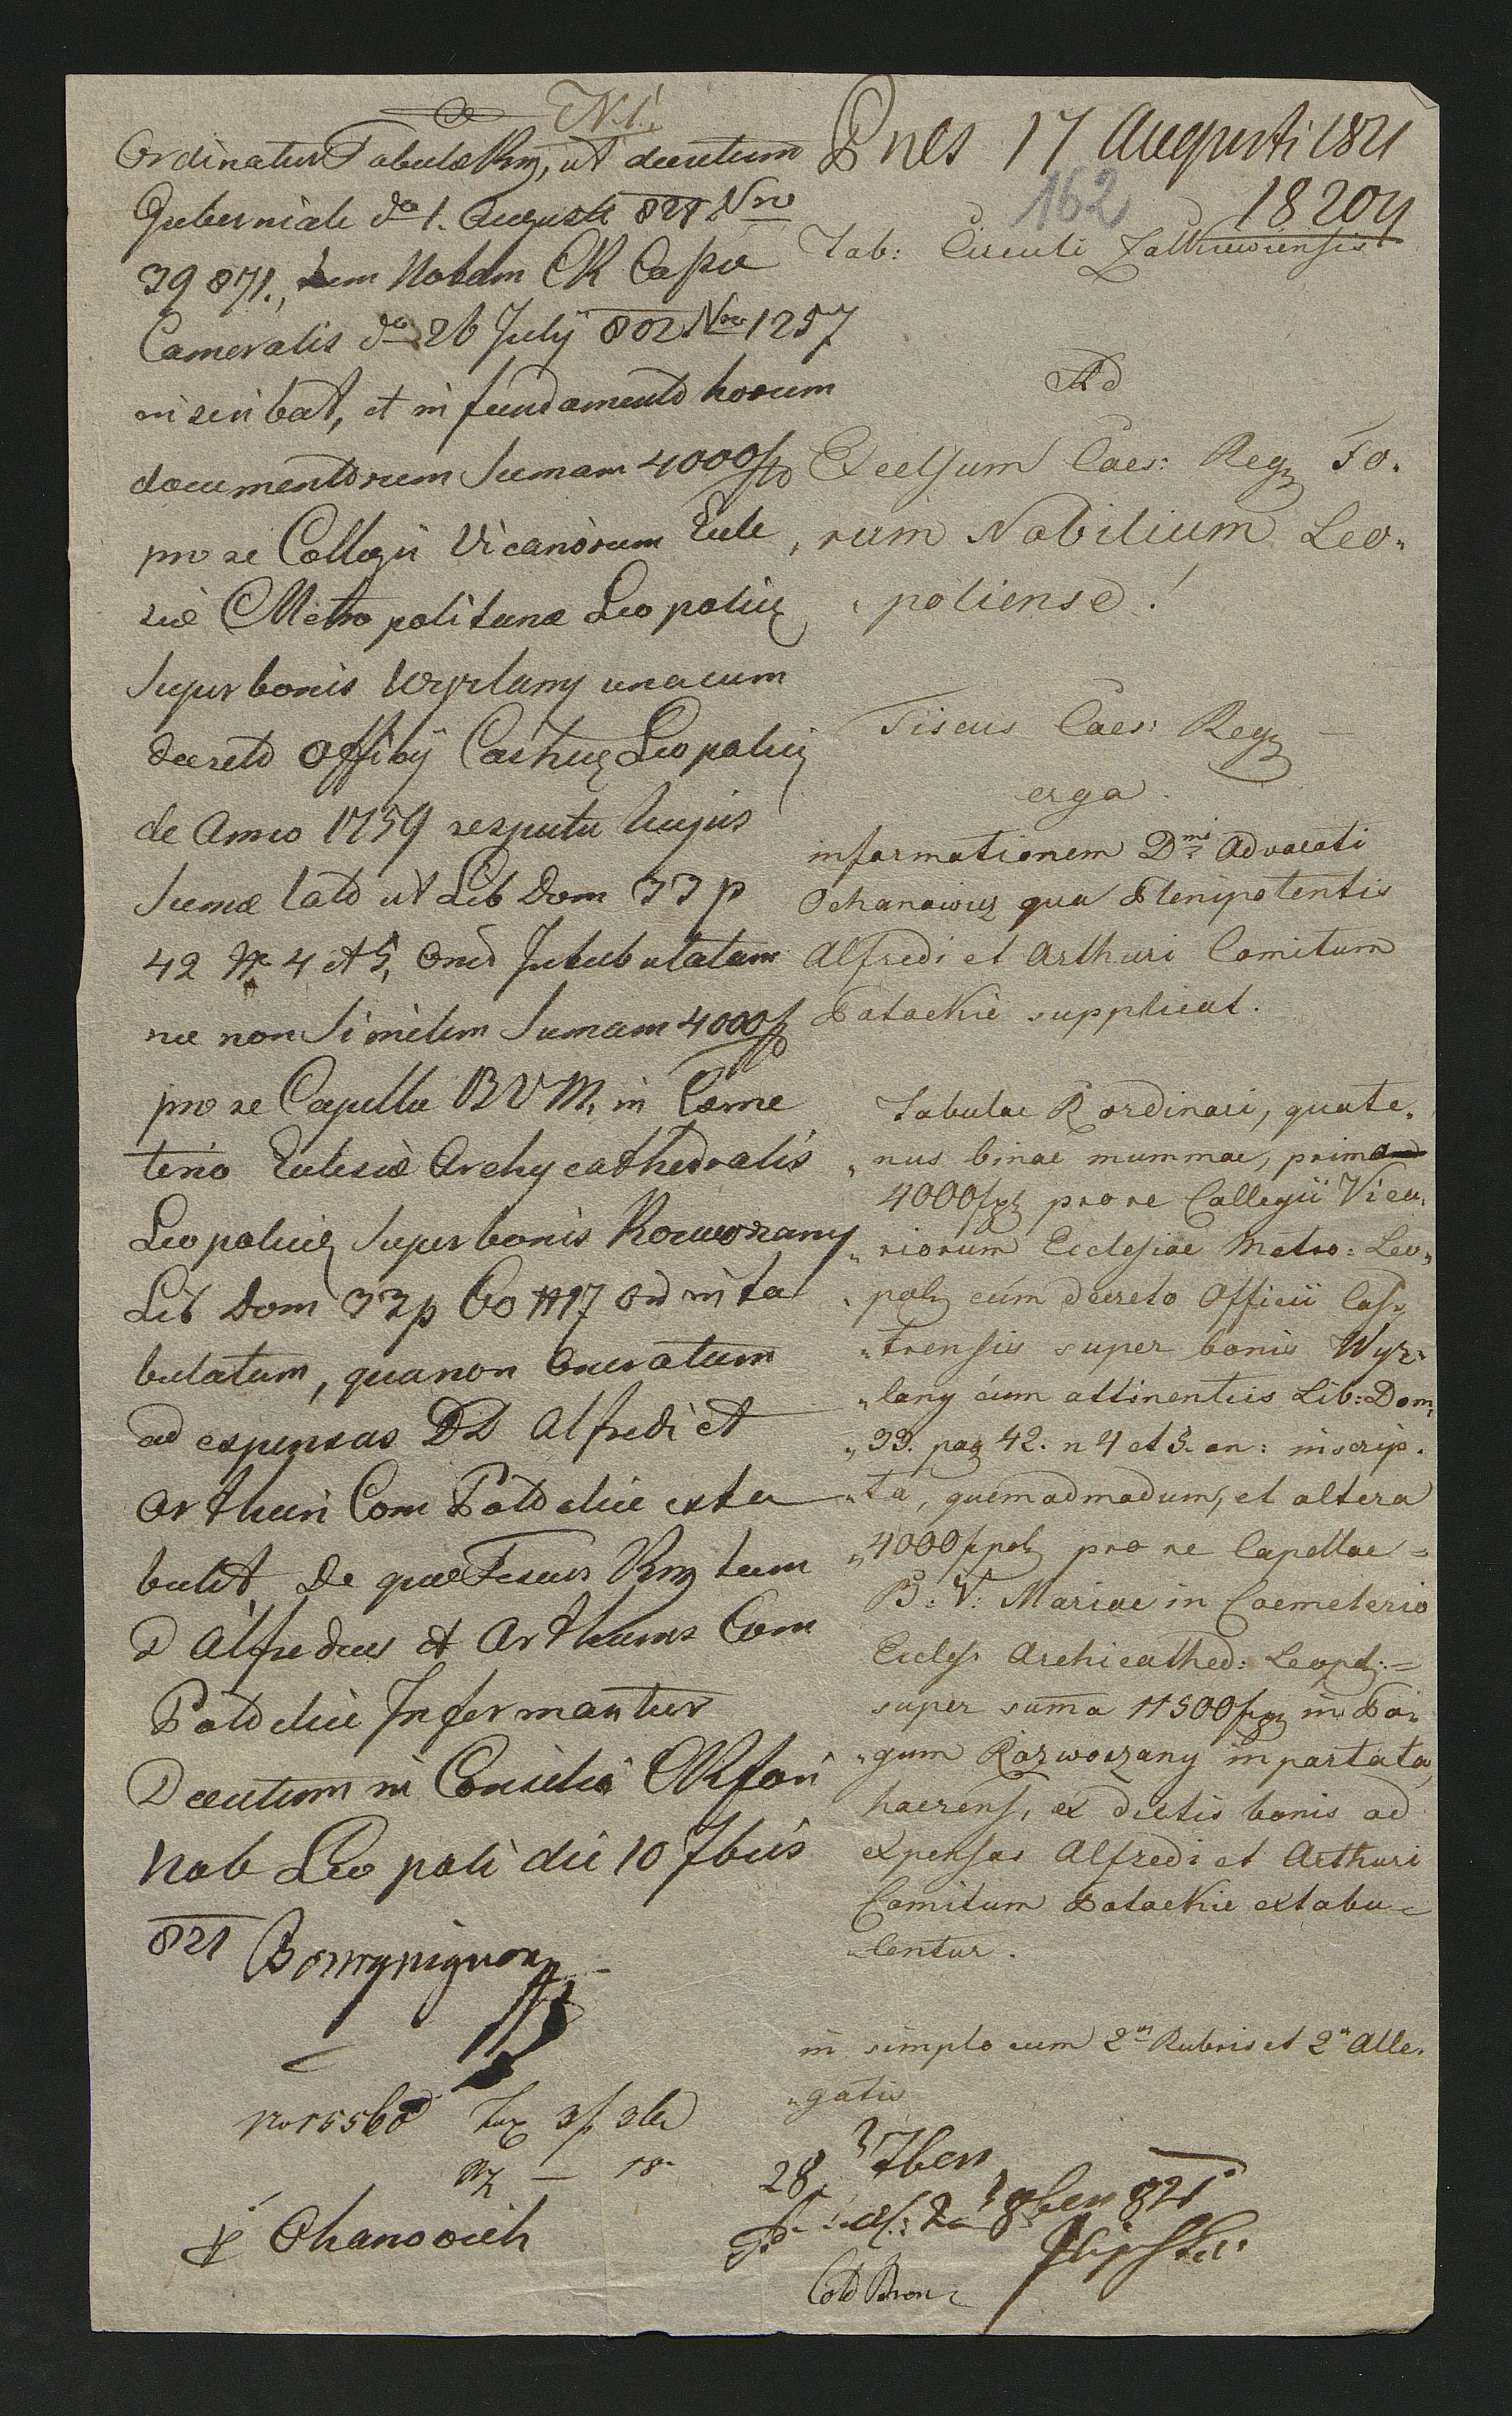 N. 1.
Ordinatur Tabulæ Rg, ut decretum
Guberniale dto 1. Augusti 821 Nro
39871., tum Notam CR Cassæ
Cameralis dto 26 July 802 Nro 1257
inscribat, et in fundamento horum
documentorum Sumam 4000 f
pro re Collegii Vicariorum Eccle
siæ Metropolitanæ Leopoliensis
super bonis Wyrlany unacum
decreto Officÿ Castren Leopolien
de Anno 1759 respectu hujus
Sumæ lato ut Lib Dom 33 p
42 N 4 et 5, on Intabulatam
nec non Similem Sumam 4000 f
pro re Capellæ B V M. in Cœme
terio Eclesiæ Archycathedralis
Leopolien super bonis Rozworzany
Lib Dom 33 p 60 N 17 on inta
bulatam, qua non oneratum
ad expensas DD Alfredi et
Arthuri Com Potockie exta
bulet, De quo Fiscus Rg tum
D Alfredus et Arthurus Com
Potockie Informantur
Decretum in Consilio CR fori
Nob Leopoli die 10 7bris
821 Bourguignon
No 15568 Tax 3 f 3
18
Ohanovich
Pnes 17 Augusti 1821
162
18204
Tab: Circuli Zolkiewiensis
Ad
Excelsum Caes: Reg Fo-
rum Nobilium Leo-
poliense!
Fiscus Caes: Reg
erga
informationem Dni Advocati
Ochanowicz qua Plenipotentis
Alfredi et Arthuri Comitum
Potockie supplicat.
Tabulae R ordinari, quate-
nus binae summae, prima
4000 fpl pro re Collegii Vica-
riorum Ecclesiae Metro: Leo-
pol cum decreto Officii Cas-
trensis super bonis Wyr-
lany cum attinentiis Lib: Dom:
33. pag 42. n 4 et 5. on: inscrip-
ta, quemadmodum, et altera
4000 fpol pro re Capellae
B: V: Mariae in Coemeterio
Eccles Archicathed: Leopol:
super suma 11500 fpl in Pa-
gum Rozworzany inportata,
haerens, ex dictis bonis ad
expensas Alfredi et Arthuri
Comitum Potockie extabu-
lentur.
in simplo cum 2 Rubris et 2 Alle-
gatis
28 7ben
8ben 821